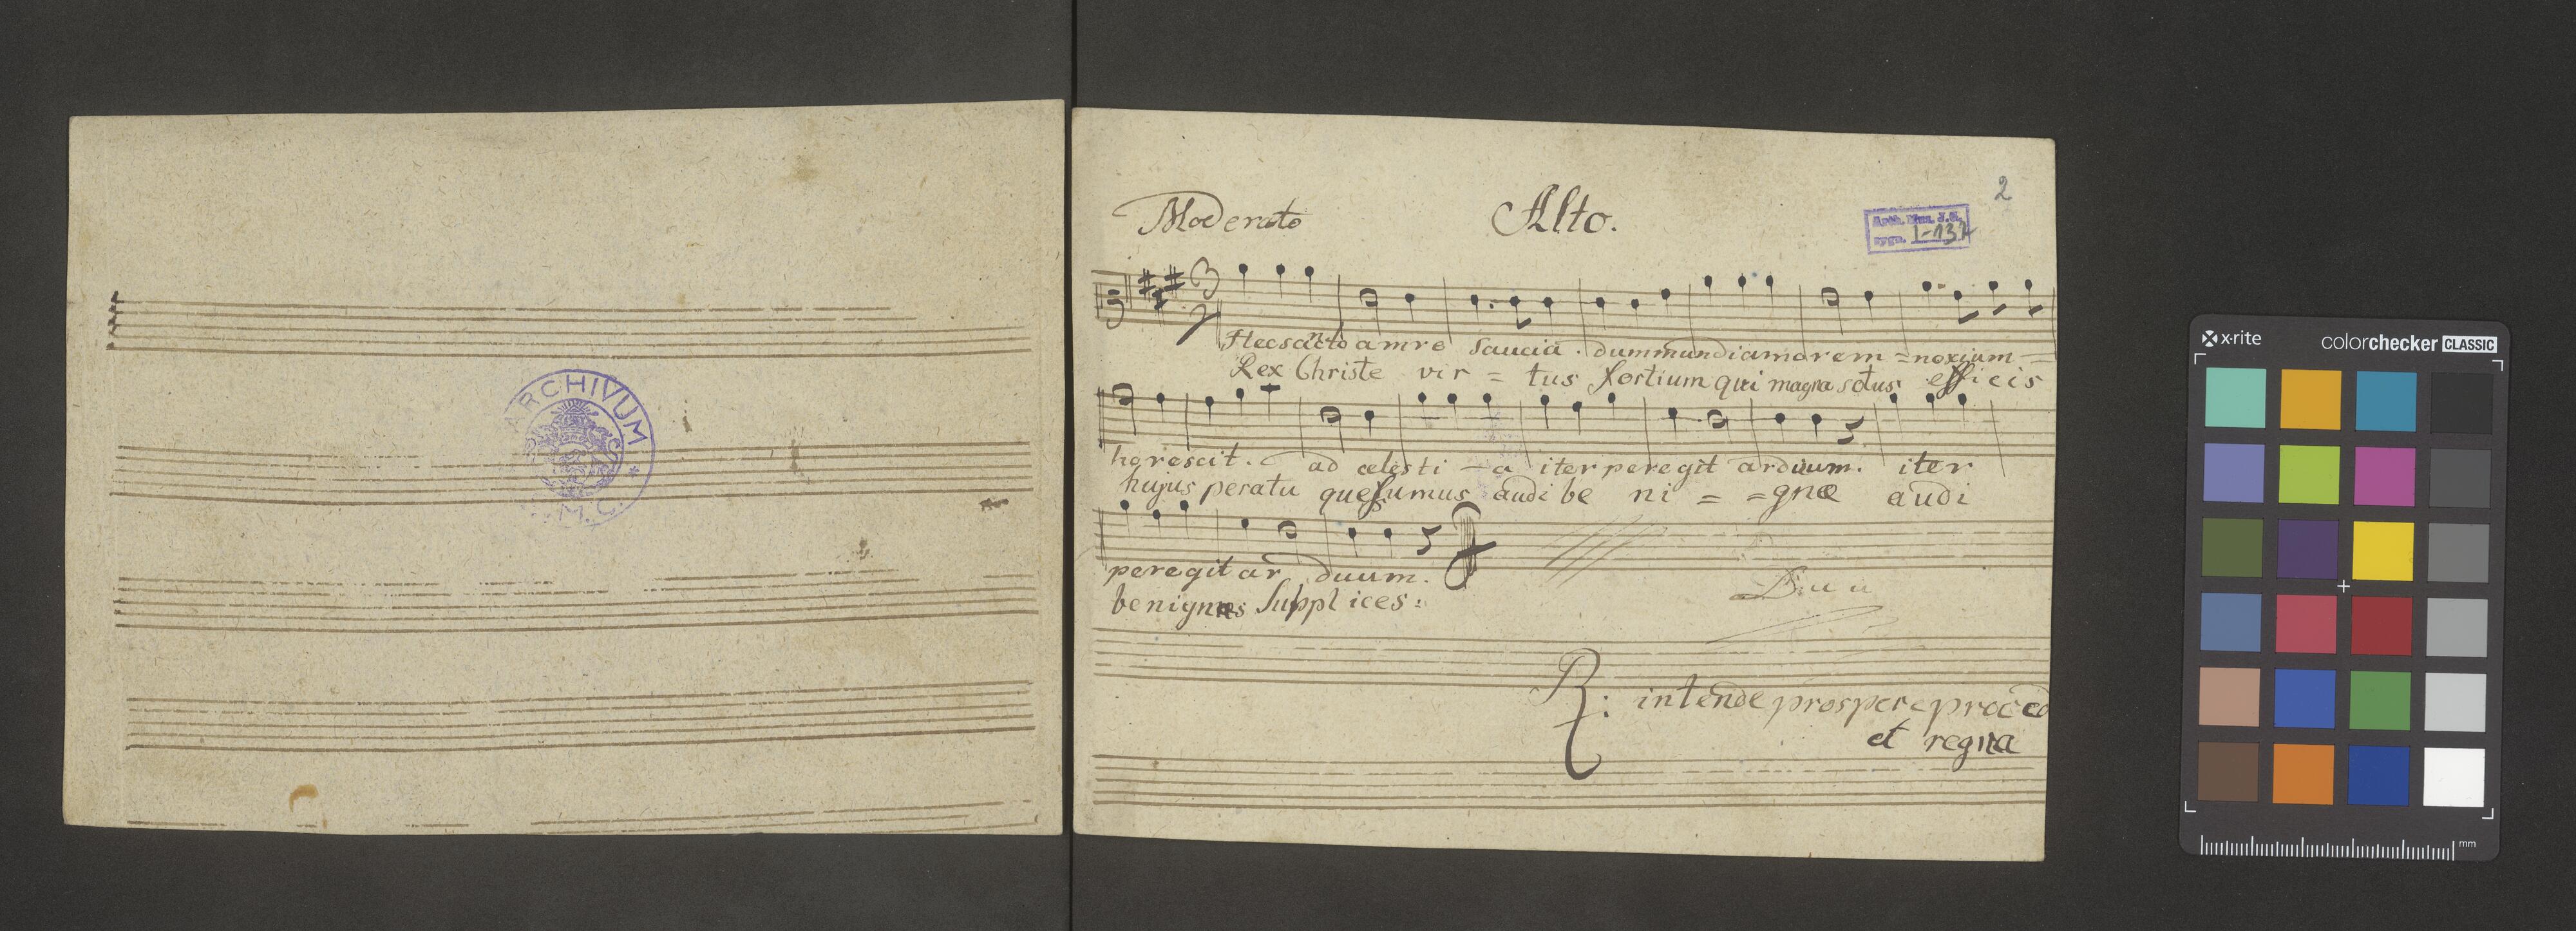 ARCHIVUM *
M. C.
2
Moderato Alto.
Arch. Mus. J. G.
sygn. I-137
3
Hec sancto amre saucia. dum mundi amorem = noxium =
Rex Christe vir = tus fortium qui magna solus efficis
horescit. ad celesti - a iter peregit arduum. iter
hujus peratu quesumus audi be ni = = gnæ audi
peregit ar duum.
benignus supplices:
R: intende prospere proced
et regna
x-rite colorchecker CLASSIC
mm